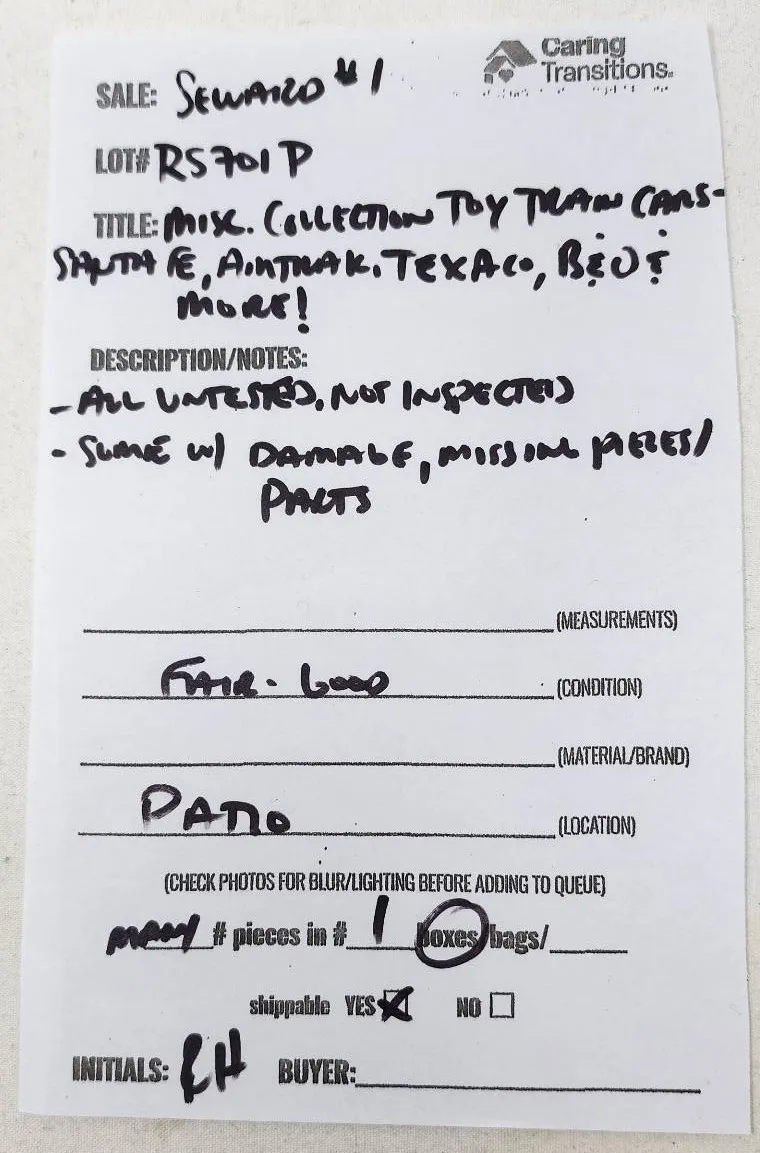 Caring
Transitions®
SALE: SEWARD #1
LOT# RS701P
TITLE: MISC. COLLECTION TOY TRAIN CARS-
SANTA FE, AMTRAK, TEXACO, B&O &
MORE!
DESCRIPTION/NOTES:
- ALL UNTESTED, NOT INSPECTED
- SOME W/ DAMAGE, MISSING PIECES/
PARTS
(MEASUREMENTS)
FAIR - GOOD (CONDITION)
(MATERIAL/BRAND)
PATIO (LOCATION)
(CHECK PHOTOS FOR BLUR/LIGHTING BEFORE ADDING TO QUEUE)
MANY # pieces in # 1 boxes/bags/
shippable YES NO
INITIALS: RH BUYER: